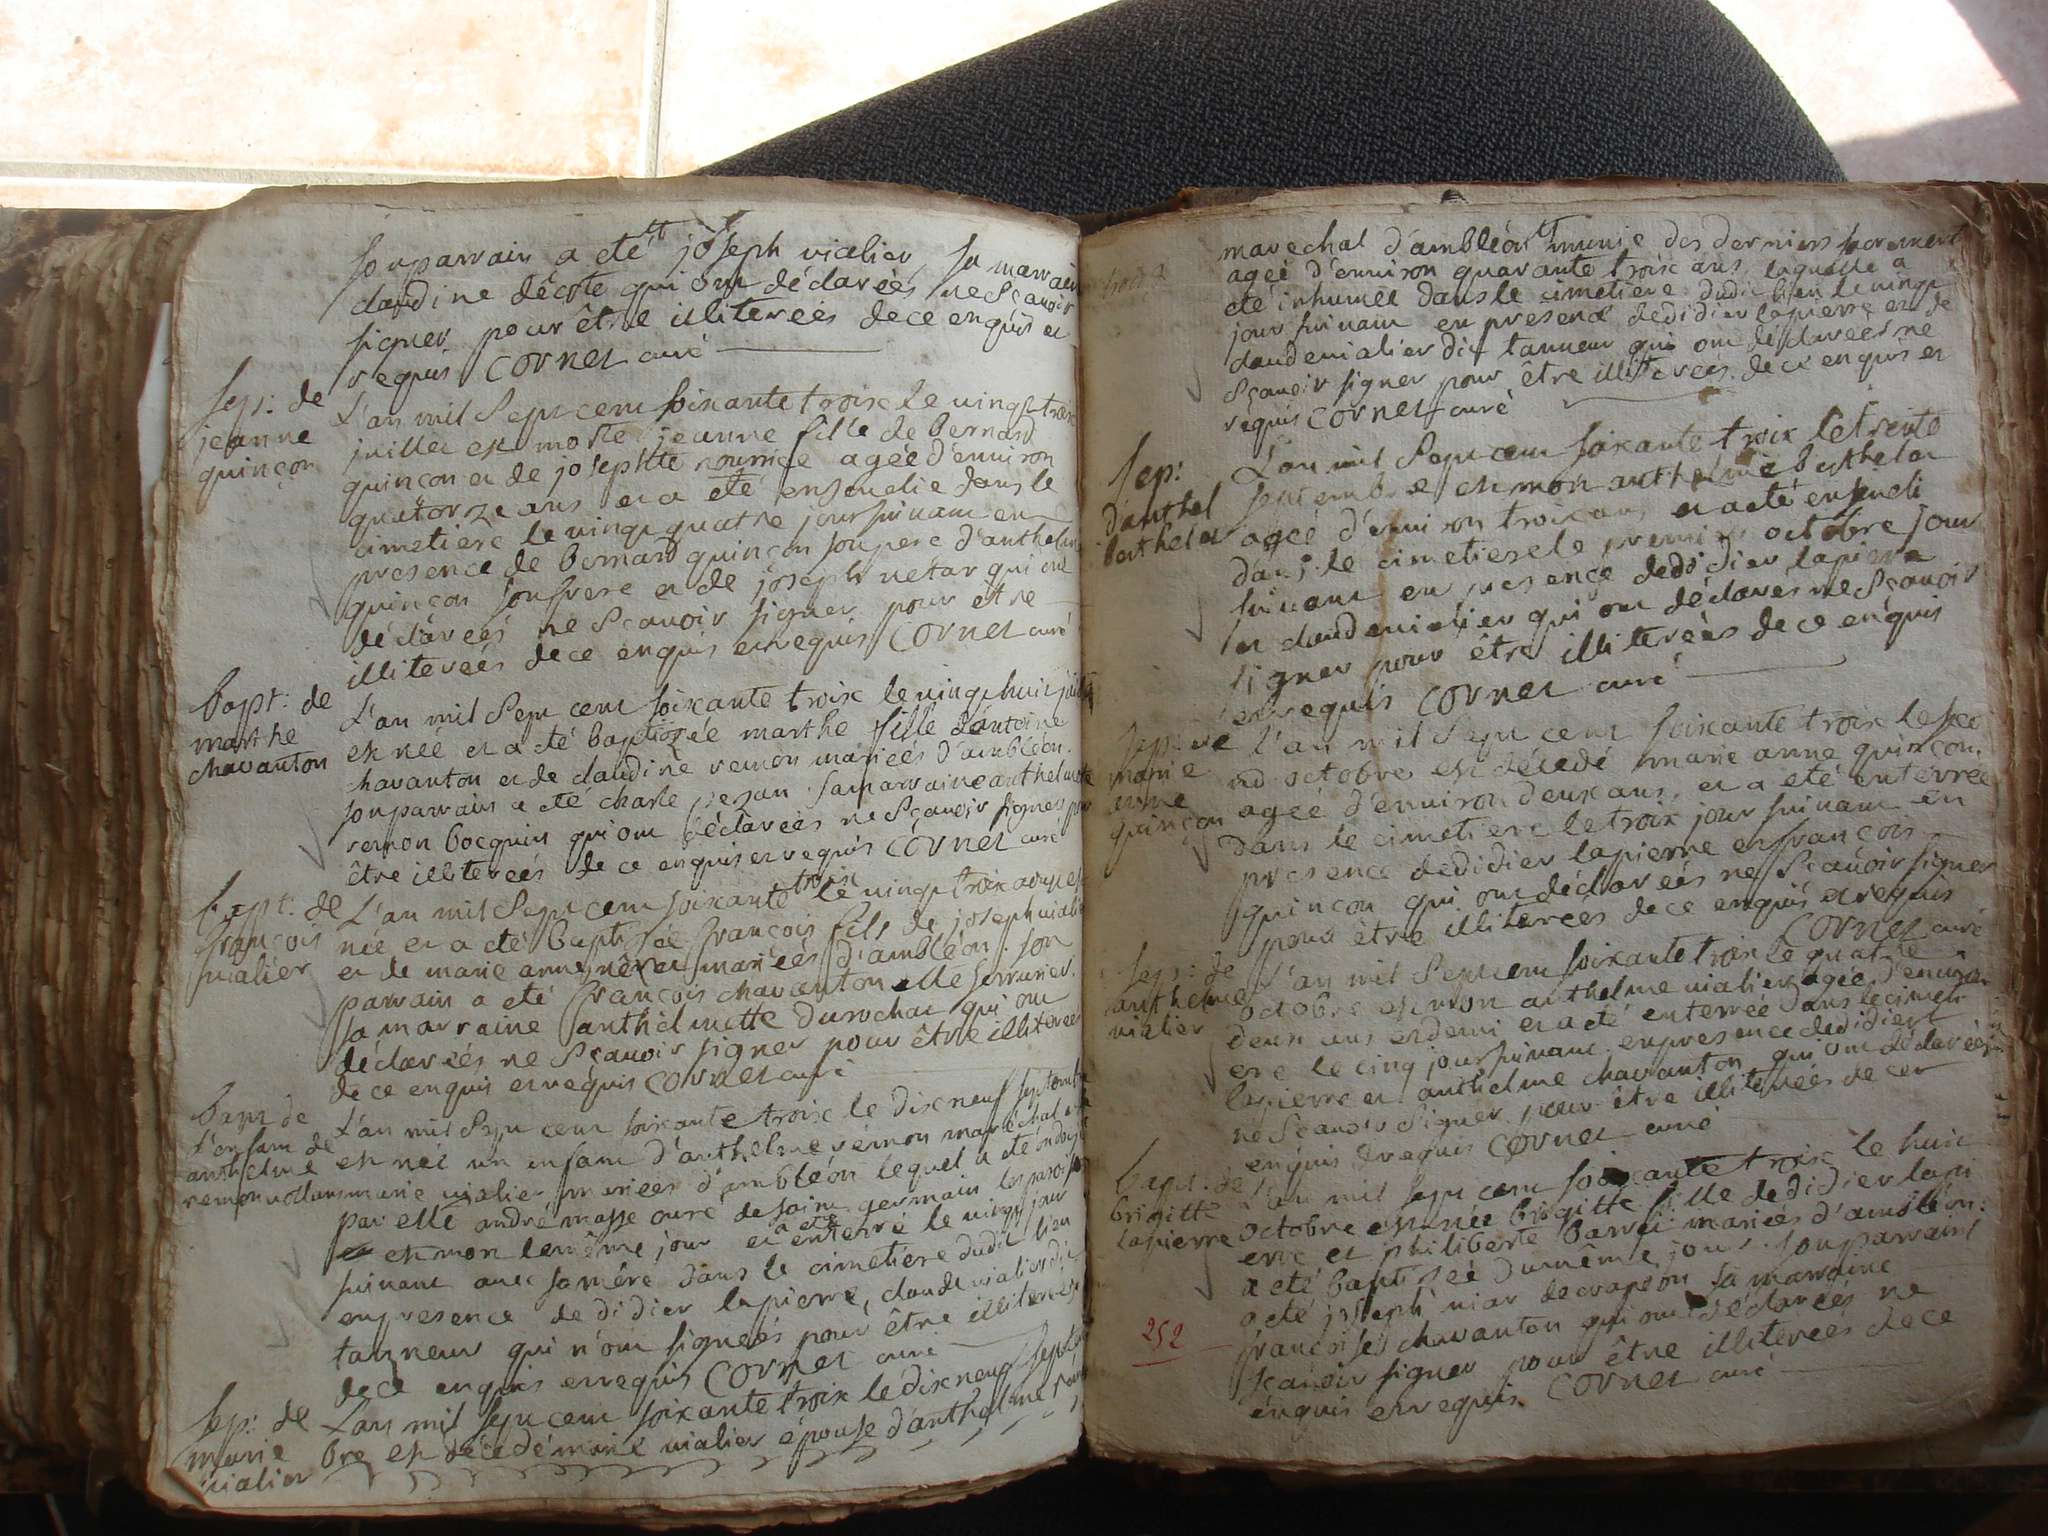 son parrain a eté tt joseph vialier, sa marraine
claudine décote qui ont déclareés ne sçavoir
signer pour être illitereés de ce enquis et
requis Cornet curé
sep: de
jeanne
quinçon
L'an mil sept cent soixante troix le vingt troix
juillet est morte jeanne fille de bernard
quinçon et de josephte ageé d'environ
quatorze ans et a eté ensevelie dans le
cimetiere le vingt quatre jour suivant en
presence de bernard quinçon son pere d'anthelme
quinçon son frere et de joseph netar qui ont
déclareés ne sçavoir signer pour etre
illitereés de ce enquis et requis Cornet curé
bapt: de
marthe
chavanton
L'an mil sept cent soixante troix le vingt huit juillet
est neé et a eté baptizée marthe fille d'antoine
chavanton et de claudine remon marieés d'ambléon.
son parrain a eté charle pezan sa marraine anthelmette
remon bocquin qui ont déclareés ne sçavoir signer pour
être illitereés de ce enquis et requis Cornet curé
bapt: de
françois
vialier
L'an mil sept cent soixante troix le vingt troix aoust est
née et a eté baptisée françois fils de joseph vialier
et de marie anne néret marieés d'ambléon: son
parrain a eté françois chavanton serrurier.
sa marraine anthelmette durochat qui ont
déclareés ne sçavoir signer pour être illitereés
de ce enquis et requis Cornet curé
bapt de
l'enfant de
anthelme
remon
L'an mil sept cent soixante troix le dix neuf septembre
est néé un enfant d'anthelme rémon maréchal et de
marie vialier marieés d'ambléon lequel a eté ondoyé
par andré masse curé de saint germain les paroisses
est mort le même jour et a eté enterré le vingt jour
suivant avec sa mére dans le cimetiere dudit lieu
en presence de didier lapierre, claude vialier dit
tanneur qui n'ont signeés pour être illitereés
de ce enquis et requis Cornet curé
sep: de
marie
vialier
L'an mil sept cent soixante troix le dix neuf septem
bre est décedé marie vialier épouse d'anthelme rémon
marechal d'ambléon munie des derniers sacrement
ageé d'environ quarante troix ans, laquelle a
eté inhumeé dans le cimetiere dudit lieu le vingt
jour suivant en presence de didier lapierre et de
claude vialier dit tanneur qui ont déclareés ne
sçavoir signer pour être illitereés de ce enquis et
requis Cornet curé
sep:
d'anthel
berthelet
L'an mil sept cent soixante troix le trente
septembre est mort anthelme berthelet
ageé d'environ troix ans et a eté enseveli
dans le cimetiere le premier octobre jour
suivant en presence de didier lapierre
et claude vialier qui ont déclarés ne sçavoir
signer pour être illitereés de ce enquis
et requis Cornet curé
sep: de
marie
anne
quinçon
L'an mil sept cent soixante troix le seco
nd octobre est décedé marie anne quinçon.
ageé d'environ deux ans, et a eté enterrée
dans le cimetiere le troix jour suivant en
presence de didier lapierre et françois
quinçon qui ont déclareés ne sçavoir signer
pour être illitereés de ce enquis et requis
Cornet curé
sep: de
anthelme
vialier
L'an mil sept cent soixante troix le quatre
octobre est mort anthelme vialier ageé d'environ
deux ans et demi et a eté enterreé dans le cimeti
ere le cinq jour suivant en presence de didier
lapierre et anthelme chavanton qui ont déclareés
ne sçavoir signer pour être illitereés de ce
enquis et requis Cornet curé
bapt: de
brigitte
lapierre
L'an mil sept cent soixante troix le huit
octobre est née brigitte fille de didier lapi
erre et philiberte marieés d'ambléon:
a eté baptizeé du même jour. son parrain
a eté joseph viar de crapson sa marraine
françoise chavanton qui ont déclareés ne
sçavoir signer pour être illitereés de ce
enquis et requis Cornet curé
252